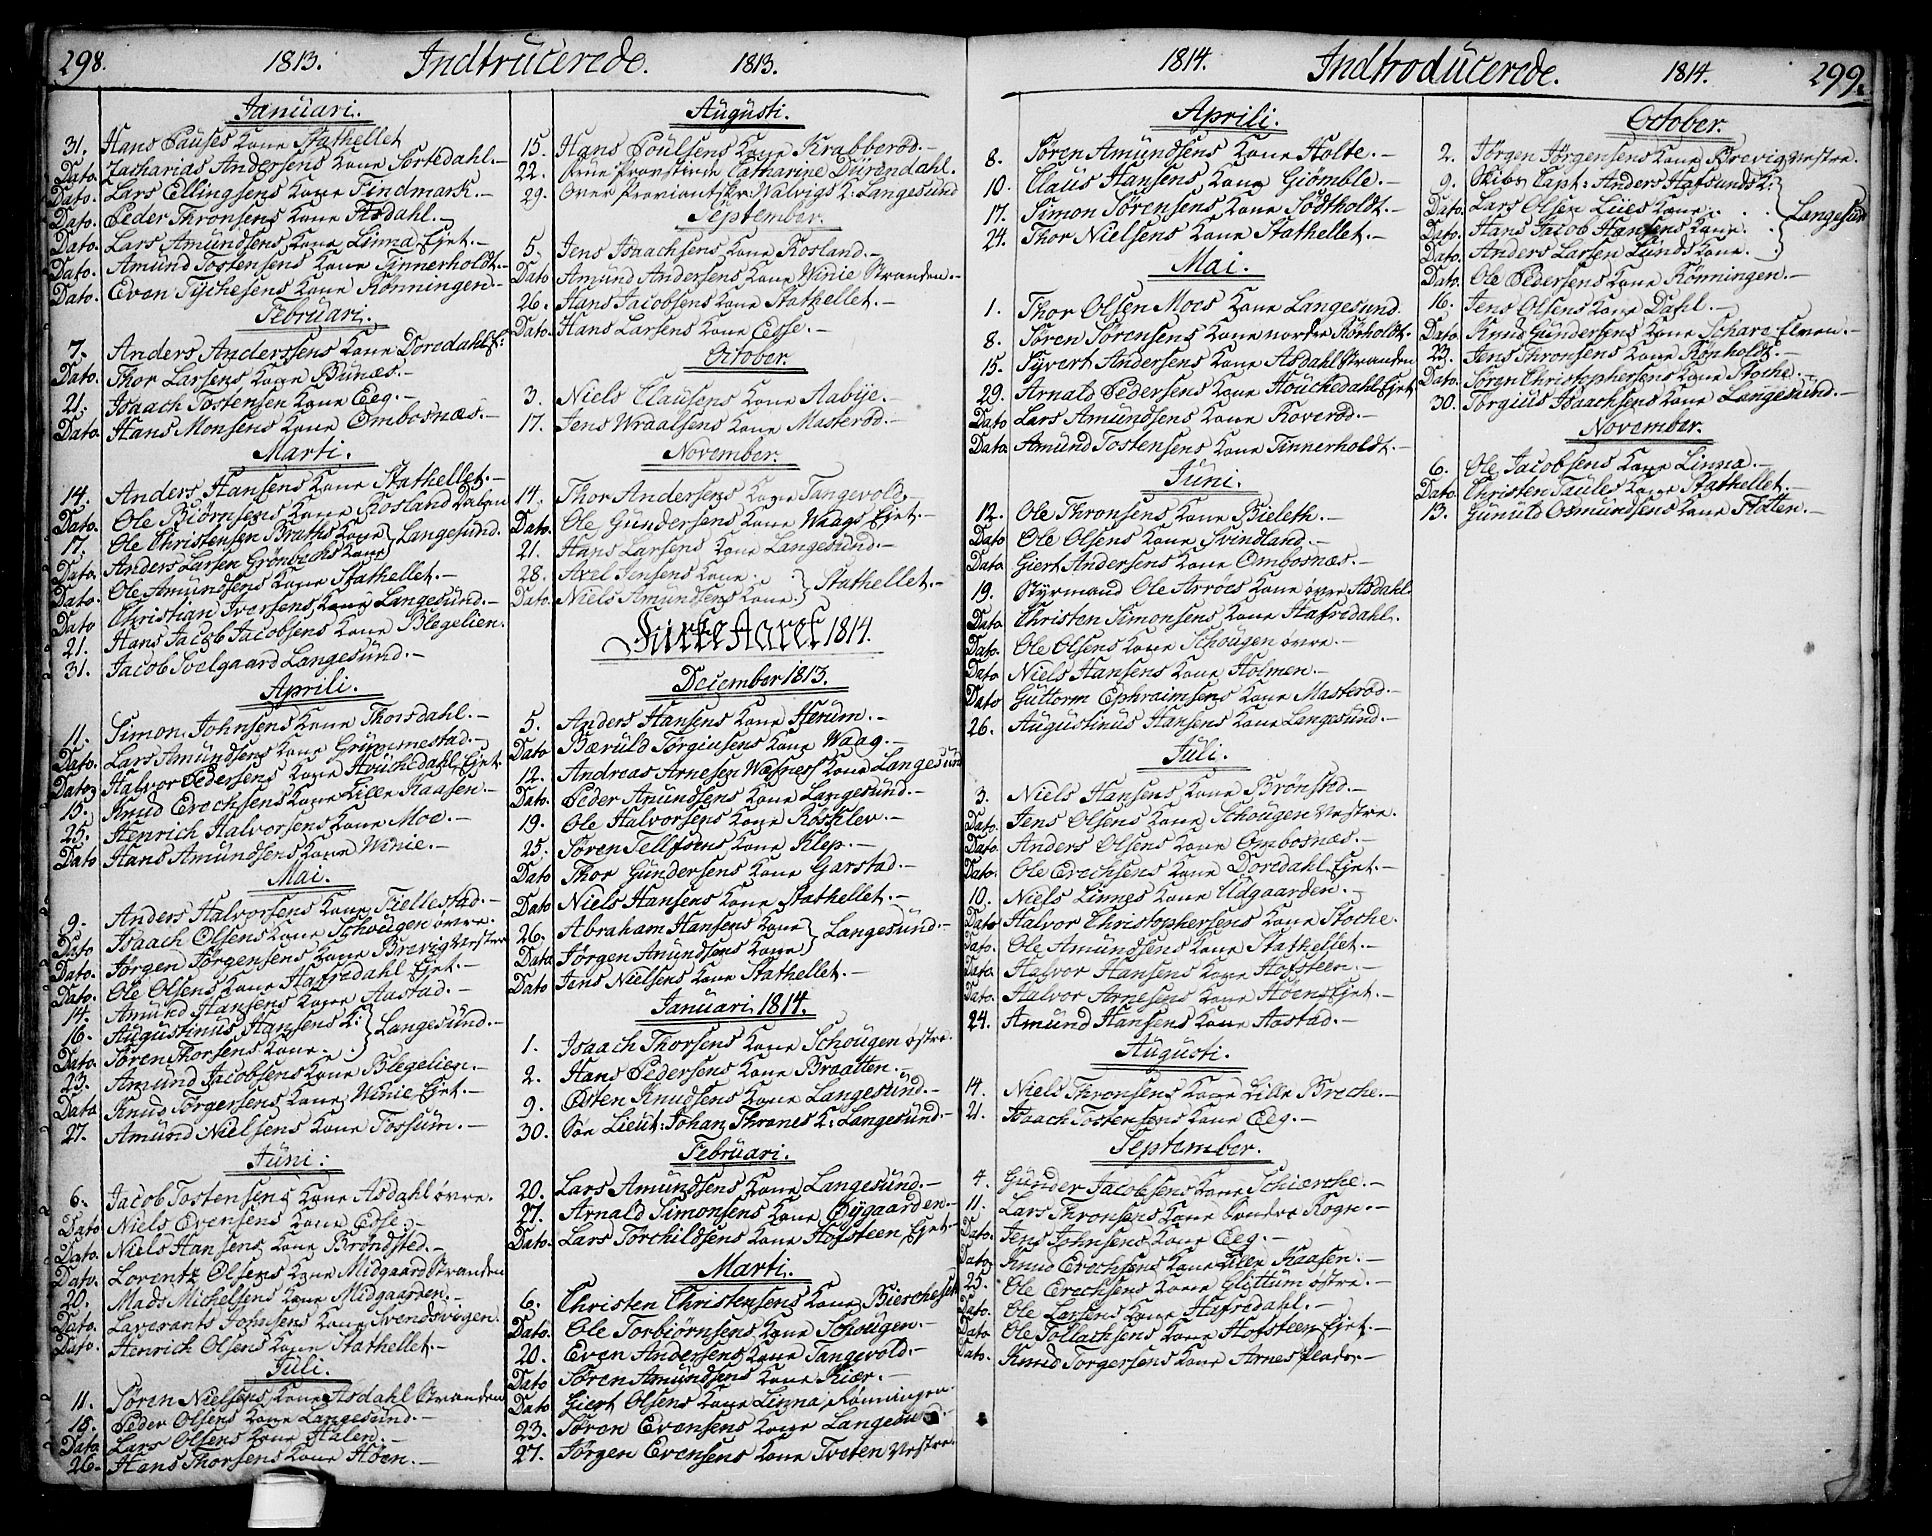 298.
1813.
Indtrucerede.
1813.
Januari.
31. Hans Pauses Kone Stathellet
Dato. Zacharias Andersens Kone Sortedahl.
Dato. Lars Ellingsens Kone Findmark.
Dato. Peder Thronsens Kone Asdahl.
Dato. Lars Amundsens Kone Linna Ejet.
Dato. Amund Tostensens Kone Tinnerholdt.
Dato. Even Tychesens Kone Rönningen
Februari.
7. Anders Anderssens Kone Doredahls
Dato. Thor Larsens Kone Bunæs.
21. Isaach Tostensen Kone Eeg.
Dato. Hans Monsens Kone Ombosnæs.
Marti.
14. Anders Hansens Kone Stathellet.
Dato. Ole Biörnsens Kone Rosland Dalen
17. Ole Christensen Braths Kone
Dato. Anders Larsen Grönbechs Kone } Langesund.
Dato. Ole Amundsens Kone Stathellet.
Dato Christian Iversens Kone Langesund.
21. Hans Jacob Jacobsens Kone Blegelien.
31. Jacob Soelgaard Langesund.
Aprili.
11. Simon Johnsens Kone Thorsdahl.
Dato. Lars Amundsens Kone Grummestad.
Dato Halvor Pedersens Kone Houchedahl Ejet
15. Knud Erechsens Kone Lille Kaasen.
25. Henrich Halvorsens Kone Moe.
Dato Hans Amundsens Kone Winie.
Mai.
9. Anders Halvorsens Kone Fiellestad.
Dato Isaach Olsens Kone Schougen övre.
Dato. Jörgen Jörgensens Kone Brevig Vestre
Dato. Ole Olsens Kone Hafredahl Ejet.
14. Amund Hansens Kone Aastad.
16. Augustinus Hansens K:
Dato. Sören Thorsens Kone. } Langesund.
23. Amund Jacobsens Kone Blegelien.
Dato Knud Torgersens Kone Winie Ejet.
27. Amund Nielsens Kone Fossum.
Juni.
6. Jacob Tostensens Kone Asdahl övre.
Dato Niels Evensens Kone Edse.
Dato. Niels Hansens Kone Bröndsted.
Dato. Lorentz Olsens Kone Midgaard Stranden
20. Mads Michelsens Kone Midgaarden.
Dato. Laverants Johnsens Kone Svendsvigen.
Dato. Henrich Olsens Kone Stathellet.
Juli.
11. Sören Nielsens Kone Asdahl Stranden
18. Peder Olsens Kone Langesund.
Dato. Lars Olsens Kone Halen.
26. Hans Thorsens Kone Höen.
Augusti.
15. Hans Poulsens Kone Krabberöd.
22. Frue Provstinde Catharine Dürendahl.
29. Over Proviantskr: Walvigs K: Langesund
September.
5. Jens Isaachsens Kone Rosland.
Dato Amund Andersens Kone Winie Stranden.
26. Hans Jacobsens Kone Stathellet.
Dato. Hans Larsens Kone Edse.
October.
3. Niels Clausens Kone Aabÿe.
17. Jens Wraalsens Kone Masteröd.
November.
14. Thor Andersens Kone Tangevold.
Dato. Ole Gundersens Kone Waags Ejet.
21. Hans Larsens Kone Langesund.
28. Axel Jensens Kone.
Dato. Niels Amundsens Kone. } Stathellet.
Kirke Aaret 1814.
December 1813.
5. Anders Hansens Kone Herum.
Dato Bærüld Törgiusens Kone Waag.
12. Andreas Arnesen Wæsnes Kone Langesund
Dato. Peder Amundsens Kone Langesund.
19. Ole Halvorsens Kone Rosklev.
25. Sören Tellefsens Kone Klep.
Dato Thor Gundersens Kone Garstad.
Dato Niels Hansens Kone Stathellet.
26. Abraham Hansens Kone
Dato Jörgen Amundsens Kone } Langesund.
Dato Jens Nielsens Kone Stathellet.
Januari 1814.
1. Isaach Thorsens Kone Schougen östre.
2. Hans Pedersens Kone Braatten.
9. Östen Knudsens Kone Langesund.
30. Søe Lieut: Johan Thranes K: Langesund.
Februari.
20. Lars Amundsens Kone Langesund.
27. Arnald Simonsens Kone Öygaarden.
Dato. Lars Torchildsens Kone Hofsteen Ejet
Marti.
6. Christen Christensens Kone Bierchesæt
Dato. Ole Torbiörnsens Kone Schougen.
20. Even Andersens Kone Tangevold.
Dato Sören Amundsens Kone Kiær.
Dato Giert Olsens Kone Linna Rönningen.
23. Sören Evensens Kone Langesund.
27. Jörgen Evensens Kone Tveten Vestre.
1814.
Indtroducerede.
1814.
299.
Aprili.
8. Sören Amundsens Kone Holte.
10. Claus Hansens Kone Giömble.
17. Simon Sörensens Kone Södtholdt.
24. Thor Nielsens Kone Stathellet.
Mai.
1. Thor Olsen Moes Kone Langesund.
8. Sören Sörensens Kone norder Körholdt.
15. Syvert Andersens Kone Asdahl Stranden
29. Arnald Pedersens Kone Houchedahl Ejet
Dato Lars Amundsens Kone Roveröd.
Dato. Amund Tostensens Kone Tinnerholdt.
Juni.
12. Ole Thronsens Kone Bieleth.
Dato Ole Olsens Kone Svindland.
Dato Giert Andersens Kone Ombosnæs.
19. Styrmand Ole Arröes Kone övre Asdahl.
Dato. Christen Simonsens Kone Hafredahl.
Dato. Ole Olsens Kone Schougen övre.
Dato Niels Hansens Kone Holmen.
Dato Guttorm Ephraimsens Kone Masteröd.
26. Augustinus Hansens Kone Langesund.
Juli.
3. Niels Hansens Kone Brönstad.
Dato. Jens Olsens Kone Schougen Vestre.
Dato. Anders Olsens Kone Ombosnæs.
Dato. Ole Erechsens Kone Doredahl Ejet.
10. Niels Linnes Kone Udgaarden.
Dato Halvor Christophersens Kone Stoche.
Dato. Ole Amundsens Kone Stathellet.
Dato. Halvor Hansens Kone Hofsteen.
Dato. Halvor Arnesens Kone Höens Ejet.
24. Amund Hansens Kone Aastad.
Augusti.
14. Niels Thronsens Kone Lille Breche.
21. Isaach Tostensens Kone Eeg.
September.
4. Gunder Jacobsens Kone Schierche.
11. Lars Thronsens Kone Søndre Rogn.
Dato. Jens Johnsens Kone Eeg.
Dato. Knud Erechsens Kone Lille Kaasen.
25. Ole Erechsens Kone Glittum östre.
Dato. Ole Larsens Kone Hafredahl.
Dato Ole Tollachsens Kone Hofsteen Ejet.
Dato. Knud Torgersens Kone Arnes
October.
2. Jörgen Jörgensens Kone Brevig Vestre.
9. Skibs Capt: Anders Hafsunds K:
Dato. Lars Olsen Lues Kone.
Dato. Hans Jacob Hansens Kone. } Langesund
Dato. Anders Larsen Lunds Kone.
Dato. Ole Pedersens Kone Rönningen.
16. Jens Olsens Kone Dahl.
Dato. Knud Gundersens Kone
23. Jens Thronsens Kone Rönholdt.
Dato. Sören Christophersens Kone Stoche.
30. Torgius Isaachsens Kone Langesund.
November.
6. Ole Jacobsens Kone Linna.
Dato. Christen Taules Kone Stathellet.
13. Gunuld Osmundsens Kone Flotten.